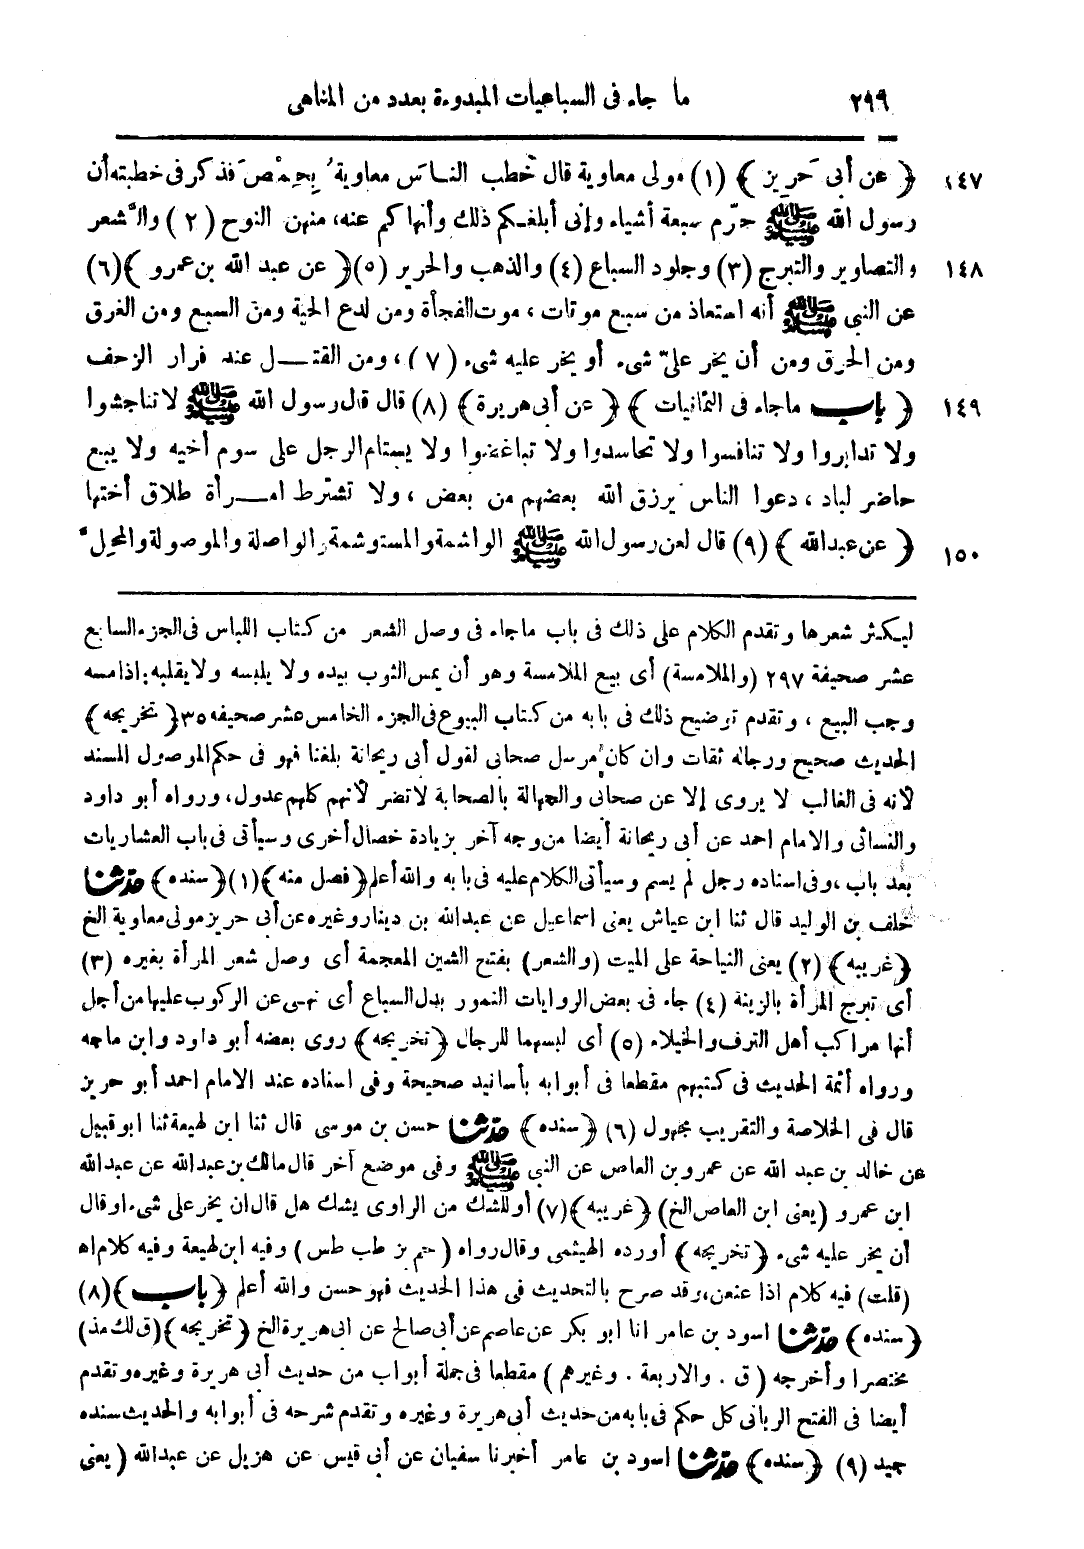 ما جاء فى السباعيات المبدوءة بعدد من المناهى ٢٩٩
١٤٧ ﴿ عن أبى حَرِيز ﴾ (١) مولى معاوية قال خطب الناس معاوية بِحِمْص فذكر فى خطبته أن
رسول الله ﷺ حرّم سبعة أشياء وإنى أبلغكم ذلك وأنهاكم عنه، منهن النوح (٢) والشعر
١٤٨ والتصاوير والتبرج (٣) وجلود السباع (٤) والذهب والحرير (٥) ﴿ عن عبد الله بن عمرو ﴾ (٦)
عن النبى ﷺ أنه استعاذ من سبع موتات ، موت الفجأة ومن لدغ الحية ومن السبع ومن الغرق
ومن الحرق ومن أن يخر علىّ شىء أو يخر عليه شىء (٧) ، ومن القتل عند فرار الزحف
١٤٩ ﴿ باب ماجاء فى الثمانيات ﴾ ﴿ عن أبى هريرة ﴾ (٨) قال قال رسول الله ﷺ لا تناجشوا
ولا تدابروا ولا تنافسوا ولا تحاسدوا ولا تباغضوا ولا يستام الرجل على سوم أخيه ولا يبع
حاضر لباد ، دعوا الناس يرزق الله بعضهم من بعض ، ولا تشترط امرأة طلاق أختها
١٥٠ ﴿ عن عبدالله ﴾ (٩) قال لعن رسول الله ﷺ الواشمة والمستوشمة والواصلة والموصولة والمحل
ليكثر شعرها وتقدم الكلام على ذلك فى باب ماجاء فى وصل الشعر من كتاب اللباس فى الجزء السابع
عشر صحيفة ٢٩٧ (والملامسة) أى بيع الملامسة وهو أن يمس الثوب بيده ولا يلبسه ولا يقلبه: اذا مسه
وجب البيع ، وتقدم توضيح ذلك فى بابه من كتاب البيوع فى الجزء الخامس عشر صحيفه ٣٥ ﴿ تخريجه ﴾
الحديث صحيح ورجاله ثقات وان كان مرسل صحابى لقول أبى ريحانة بلغنا فهو فى حكم الموصول المسند
لأنه فى الغالب لا يروى إلا عن صحابى والجهالة بالصحابة لاتضر لأنهم كلهم عدول، ورواه أبو داود
والنسائى والامام احمد عن أبى ريحانة أيضا من وجه آخر بزيادة خصال أخرى وسيأتى فى باب العشاريات
بعد باب ، وفى اسناده رجل لم يسم وسيأتى الكلام عليه فى بابه والله أعلم ﴿ فصل منه ﴾ (١) ﴿ سنده ﴾ حدثنا
خلف بن الوليد قال ثنا ابن عياش يعنى اسماعيل عن عبدالله بن دينار وغيره عن أبى حريز مولى معاوية الخ
﴿ غريبه ﴾ (٢) يعنى النياحة على الميت (والشعر) بفتح الشين المعجمة أى وصل شعر المرأة بغيره (٣)
أى تبرج المرأة بالزينة (٤) جاء فى بعض الروايات النمور بدل السباع أى نهى عن الركوب عليها من أجل
أنها مراكب أهل الترف والخيلاء (٥) أى لبسهما للرجال ﴿ تخريجه ﴾ روى بعضه أبو داود وابن ماجه
ورواه أئمة الحديث فى كتبهم مقطعا فى أبوابه بأسانيد صحيحة وفى اسناده عند الامام احمد أبو حريز
قال فى الخلاصة والتقريب مجهول (٦) ﴿ سنده ﴾ حدثنا حسن بن موسى قال ثنا ابن لهيعة ثنا ابو قبيل
عن خالد بن عبد الله عن عمرو بن العاص عن النبى ﷺ وفى موضع آخر قال مالك بن عبدالله عن عبدالله
ابن عمرو (يعنى ابن العاص الخ) ﴿ غريبه ﴾ (٧) أو للشك من الراوى يشك هل قال ان يخر على شىء اوقال
أن يخر عليه شىء ﴿ تخريجه ﴾ أورده الهيثمى وقال رواه (حم بز طب طس) وفيه ابن لهيعة وفيه كلام اه
(قلت) فيه كلام اذا عنعن، وقد صرح بالتحديث فى هذا الحديث فهو حسن والله أعلم ﴿ باب ﴾ (٨)
﴿ سنده ﴾ حدثنا اسود بن عامر انا ابو بكر عن عاصم عن أبى صالح عن ابى هريرة الخ ﴿ تخريجه ﴾ (ق لك مذ)
مختصرا وأخرجه (ق . والاربعة . وغيرهم) مقطعا فى جملة أبواب من حديث أبى هريرة وغيره وتقدم
أيضا فى الفتح الربانى كل حكم فى بابه من حديث أبى هريرة وغيره وتقدم شرحه فى أبوابه والحديث سنده
جيد (٩) ﴿ سنده ﴾ حدثنا اسود بن عامر أخبرنا سفيان عن أبى قيس عن هزيل عن عبدالله (يعنى